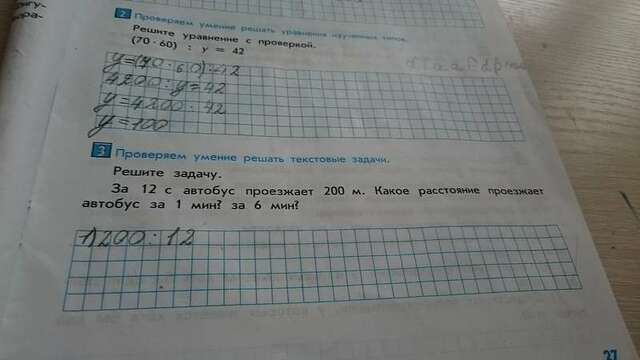 2 Проверяем умение решать уравнения изученных типов.
Решите уравнение с проверкой.
(70 · 60) : y = 42
y=(70·60):42
4200:y=42
y=4200:42
y=100
3 Проверяем умение решать текстовые задачи.
Решите задачу.
За 12 с автобус проезжает 200 м. Какое расстояние проезжает
автобус за 1 мин? за 6 мин?
1)200:12
27